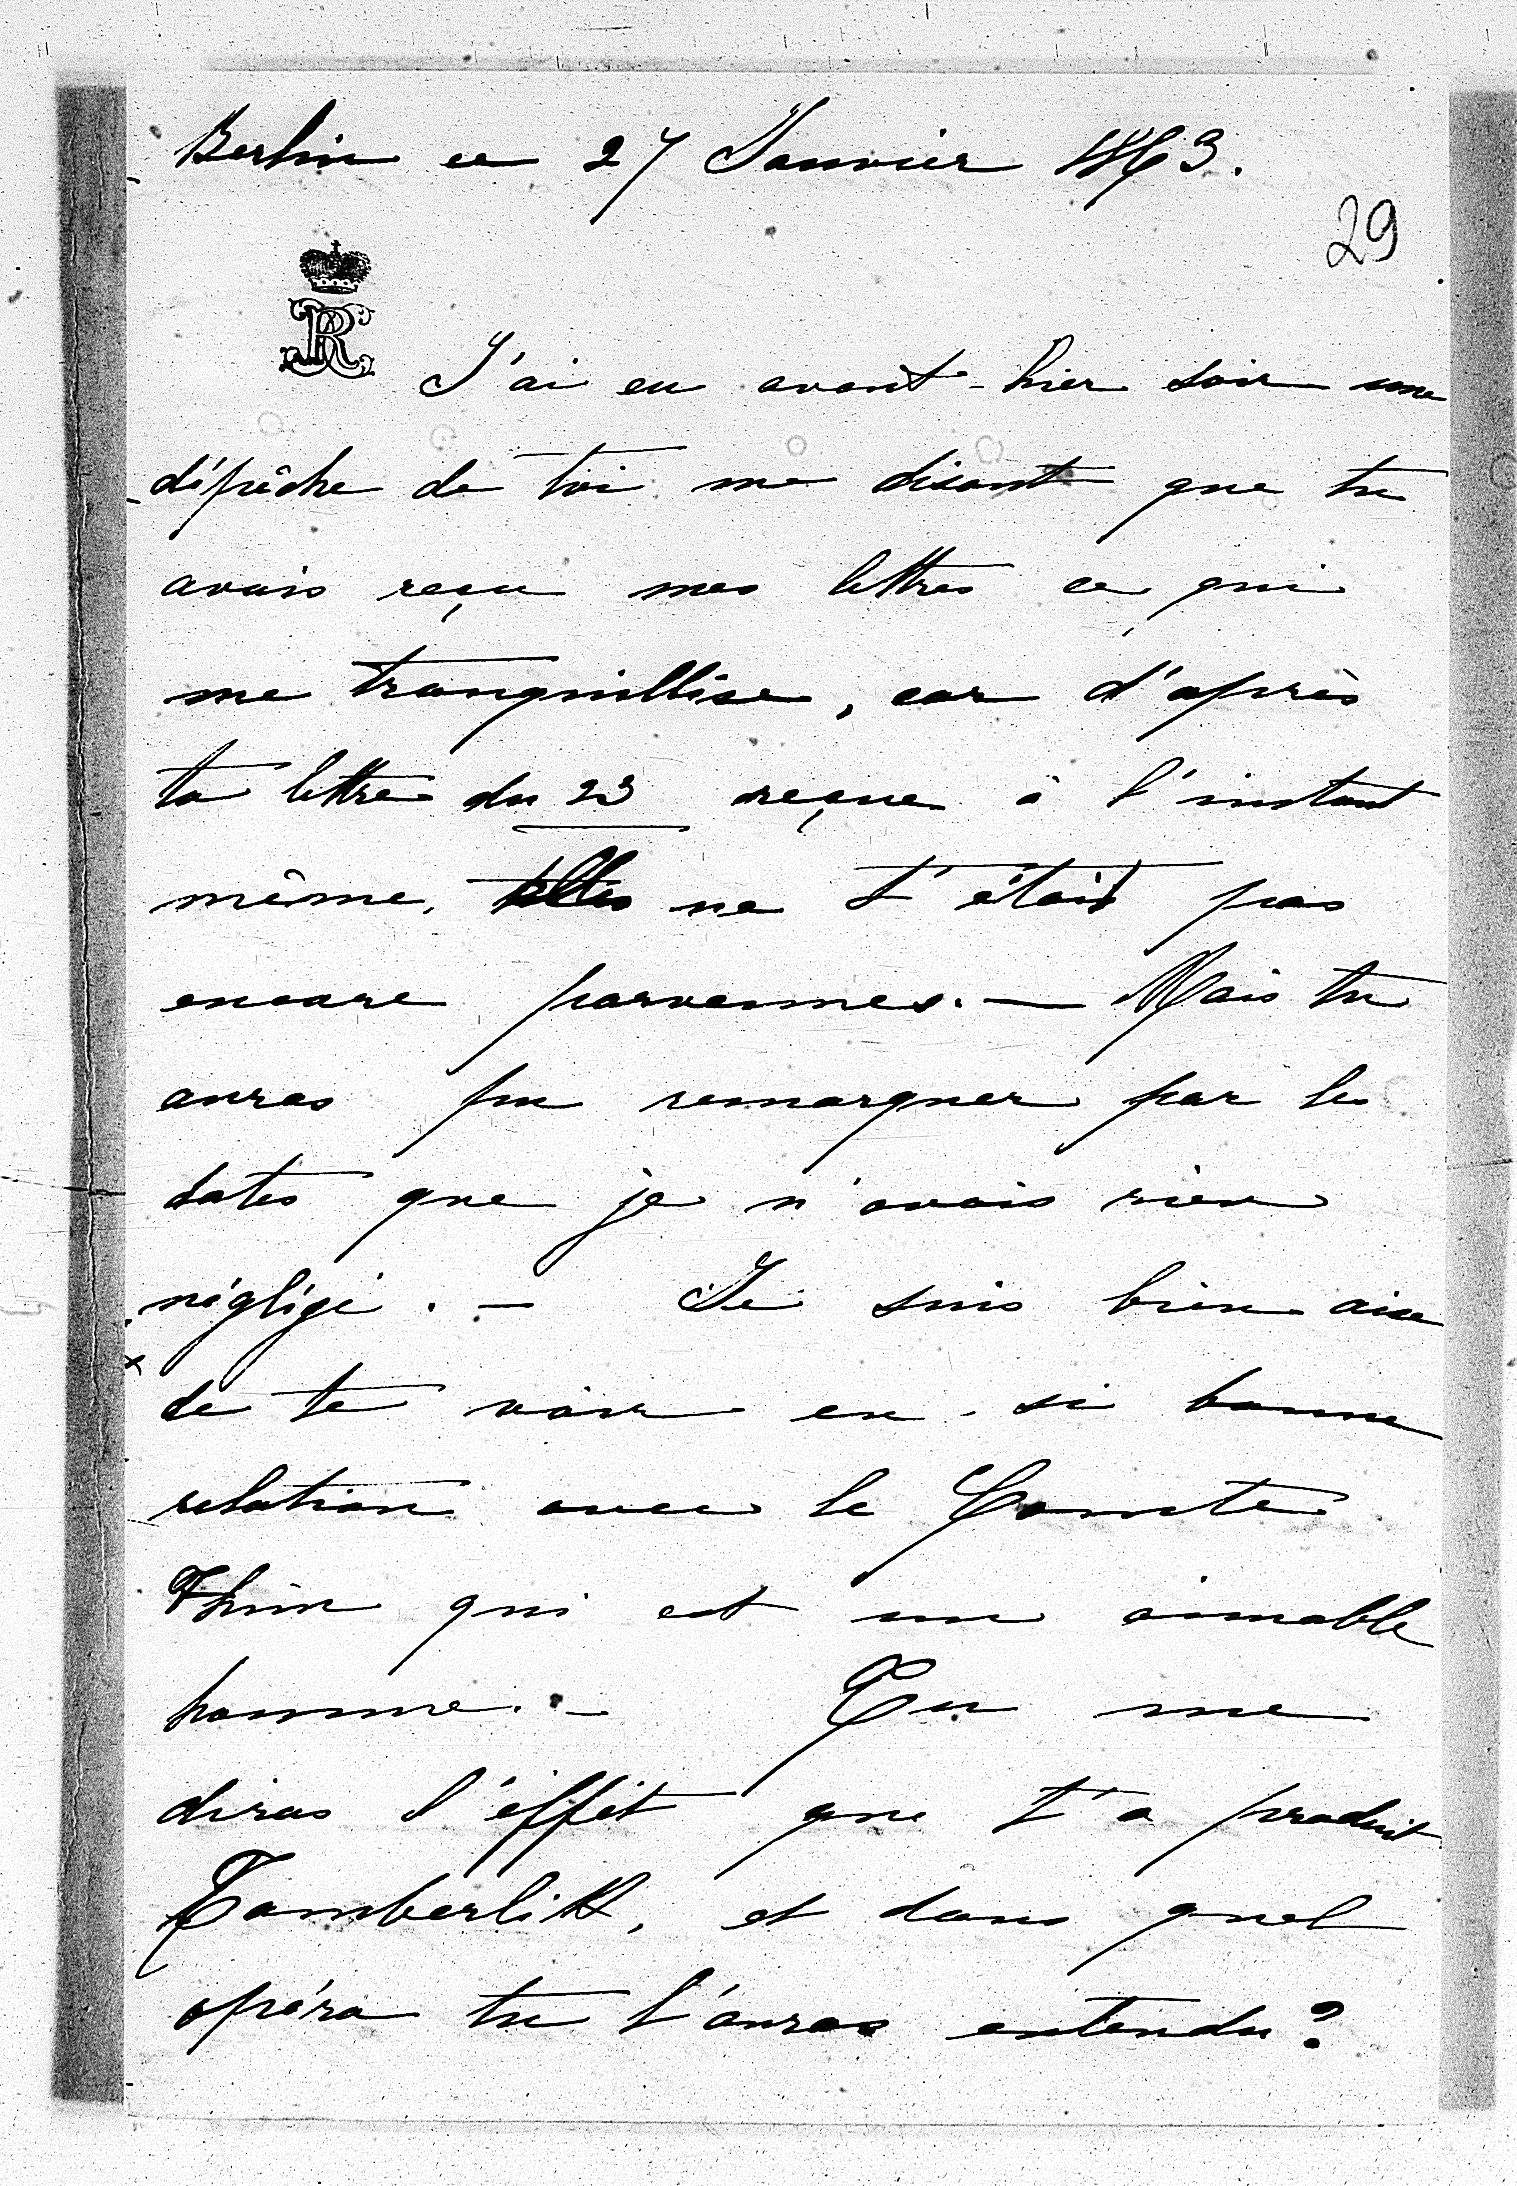 Berlin ce 27 Janvier 1863.
29
R
J'ai eu avant-hier soir une
dépêche de toi me disant que tu
avais reçu mes lettres ce qui
me tranquillise, car d'après
ta lettre du 23 reçue à l'instant
même, elles ne t'était pas
encore parvenues. — Mais tu
auras pu remarquer par les
dates que je n'avais rien
négligé. — Je suis bien aise
de te voir en si bonne
relation avec le Comte
Thun qui est un aimable
homme. — Tu me
diras l'éffét que t'a produit
Tamberlik, et dans quel
opéra tu l'auras entendu?